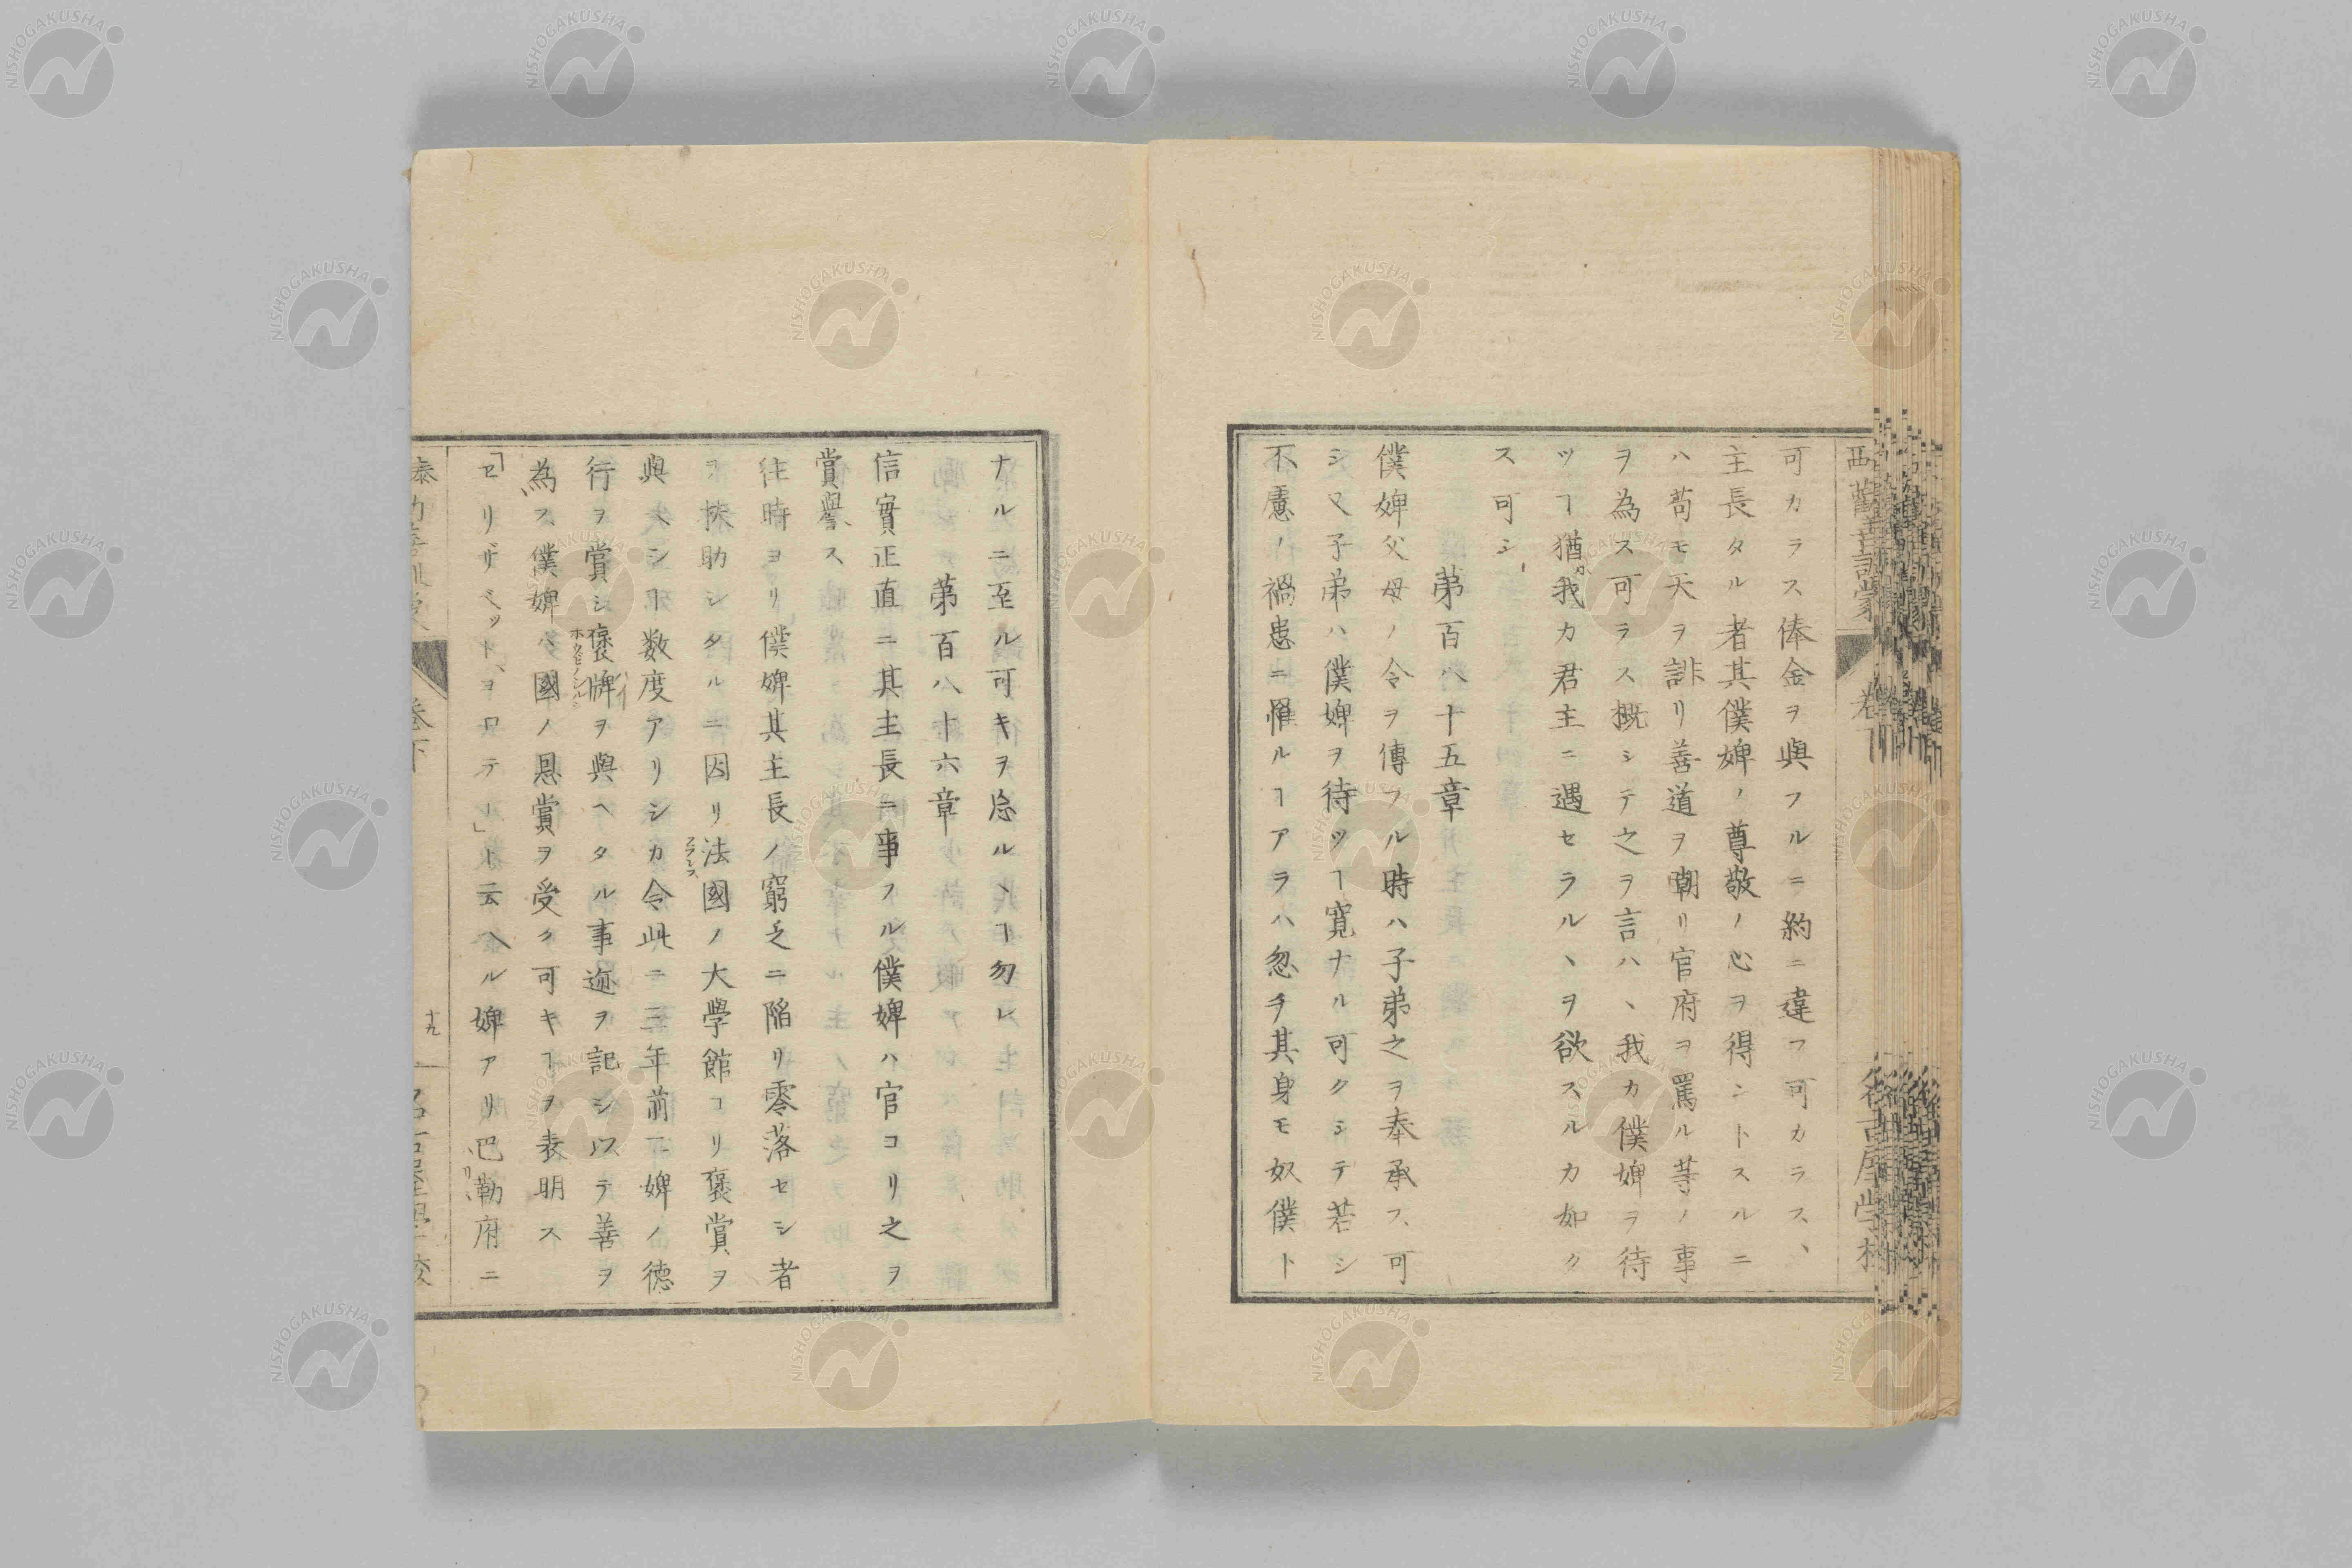 可カラス俸金ヲ與フルニ約ニ違フ可カラス、
主長タル者其僕婢ノ尊敬ノ心ヲ得ントスルニ
ハ苟モ天ヲ誹リ善道ヲ嘲リ官府ヲ罵ル等ノ事
ヲ為ス可ラス概シテ之ヲ言ハヽ我カ僕婢ヲ待
ツヿ猶我カ君主ニ遇セラルヽヲ欲スルカ如ク
ス可シ
第百八十五章
僕婢父母ノ令ヲ傳フル時ハ子弟之ヲ奉承ス可
シ又子弟ハ僕婢ヲ待ツヿ寛ナル可クシテ若シ
不慮ノ禍患ニ罹ルヿアラハ忽チ其身モ奴僕ト
ナルニ至ル可キヲ忘ルヽヿ勿レ
第百八十六章
信實正直ニ其主長ニ事フル僕婢ハ官ヨリ之ヲ
賞譽ス
往時ヨリ僕婢其主長ノ窮乏ニ陥リ零落セシ者
ヲ扶助シタルニ因リ法國ノ大學館ヨリ褒賞ヲ
與ヘシヿ数度アリシカ今此ニ三年前一婢ノ徳
行ヲ賞シ褒牌ヲ與ヘタル事迹ヲ記シ以テ善ヲ
為ス僕婢ハ國ノ恩賞ヲ受ク可キヿヲ表明ス
「セリザベット、ヲロテー」ト云ヘル婢アリ巴勒府ニ
巻下
十九
NISHOGAKUSHA